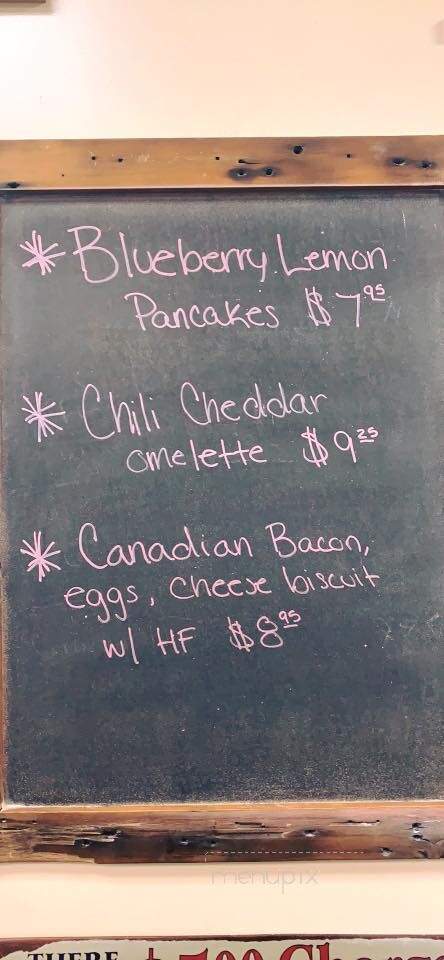 * Blueberry Lemon
Pancakes $7.95
* Chili Cheddar
omelette $9.25
* Canadian Bacon,
eggs, cheese biscuit
w/ HF $8.95
menupix
THERE